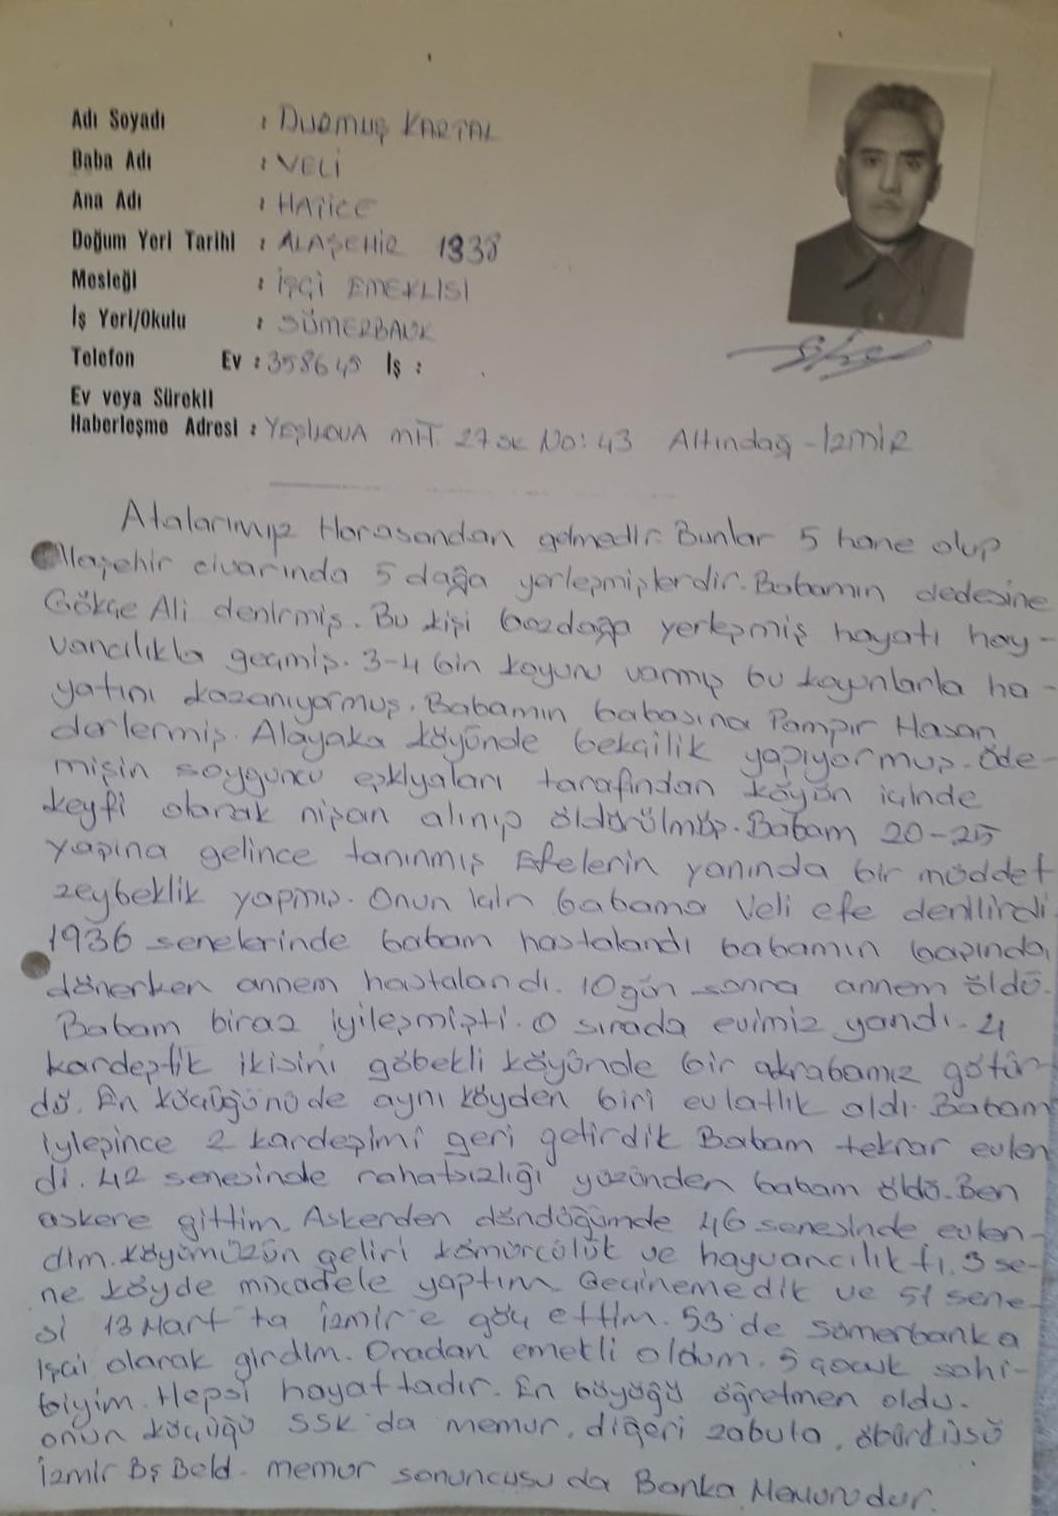 Adı Soyadı : DURMUŞ KARTAL
Baba Adı : VELİ
Ana Adı : HATİCE
Doğum Yeri Tarihi : ALAŞEHİR 1338
Mesleği : İŞÇİ EMEKLİSİ
İş Yeri/Okulu : SÜMERBANK
Telefon Ev : 358645 İş :
Ev veya Sürekli
Haberleşme Adresi : YEŞİLOVA MH. 27 SK NO: 43 Altındağ - İZMİR
Atalarımız Horasandan gelmedir. Bunlar 5 hane olup
Alaşehir civarında 5 dağa yerleşmişlerdir. Babamın dedesine
Gökçe Ali denirmiş. Bu kişi bozdağa yerleşmiş hayatı hay-
vancılıkla geçmiş. 3-4 bin koyunu varmış bu koyunlarla ha-
yatını kazanıyormuş. Babamın babasına Pampır Hasan
derlermiş. Alayaka köyünde bekçilik yapıyormuş. Öde-
mişin soyguncu eşkiyaları tarafından köyün içinde
keyfi olarak nişan alınıp öldürülmüş. Babam 20-25
yaşına gelince tanınmış Efelerin yanında bir müddet
zeybeklik yapmış. Onun için babama Veli efe denilirdi.
1936 senelerinde babam hastalandı babamın başında
dönerken annem hastalandı. 10 gün sonra annem öldü.
Babam biraz iyileşmişti. O sırada evimiz yandı. 4
kardeştik ikisini göbekli köyünde bir akrabamız götür-
dü. En küçüğünüde aynı köyden biri evlatlık aldı. Babam
iyleşince 2 kardeşimi geri getirdik Babam tekrar evlen
di. 42 senesinde rahatsızlığı yüzünden babam öldü. Ben
askere gittim. Askerden döndüğümde 46 senesinde evlen-
dim. Köyümüzün geliri kömürcülük ve hayvancılıktı. 3 se-
ne köyde mücadele yaptım Geçinemedik ve 51 sene-
si 13 Mart ta izmir'e göç ettim. 53'de sümerbanka
işçi olarak girdim. Oradan emekli oldum. 5 çocuk sahi-
biyim. Hepsi hayattadır. En büyüğü öğretmen oldu.
onun küçüğü SSK'da memur, diğeri zabıta, öbürküsü
İzmir Bş Beld. memur sonuncusu da Banka Memurudur.